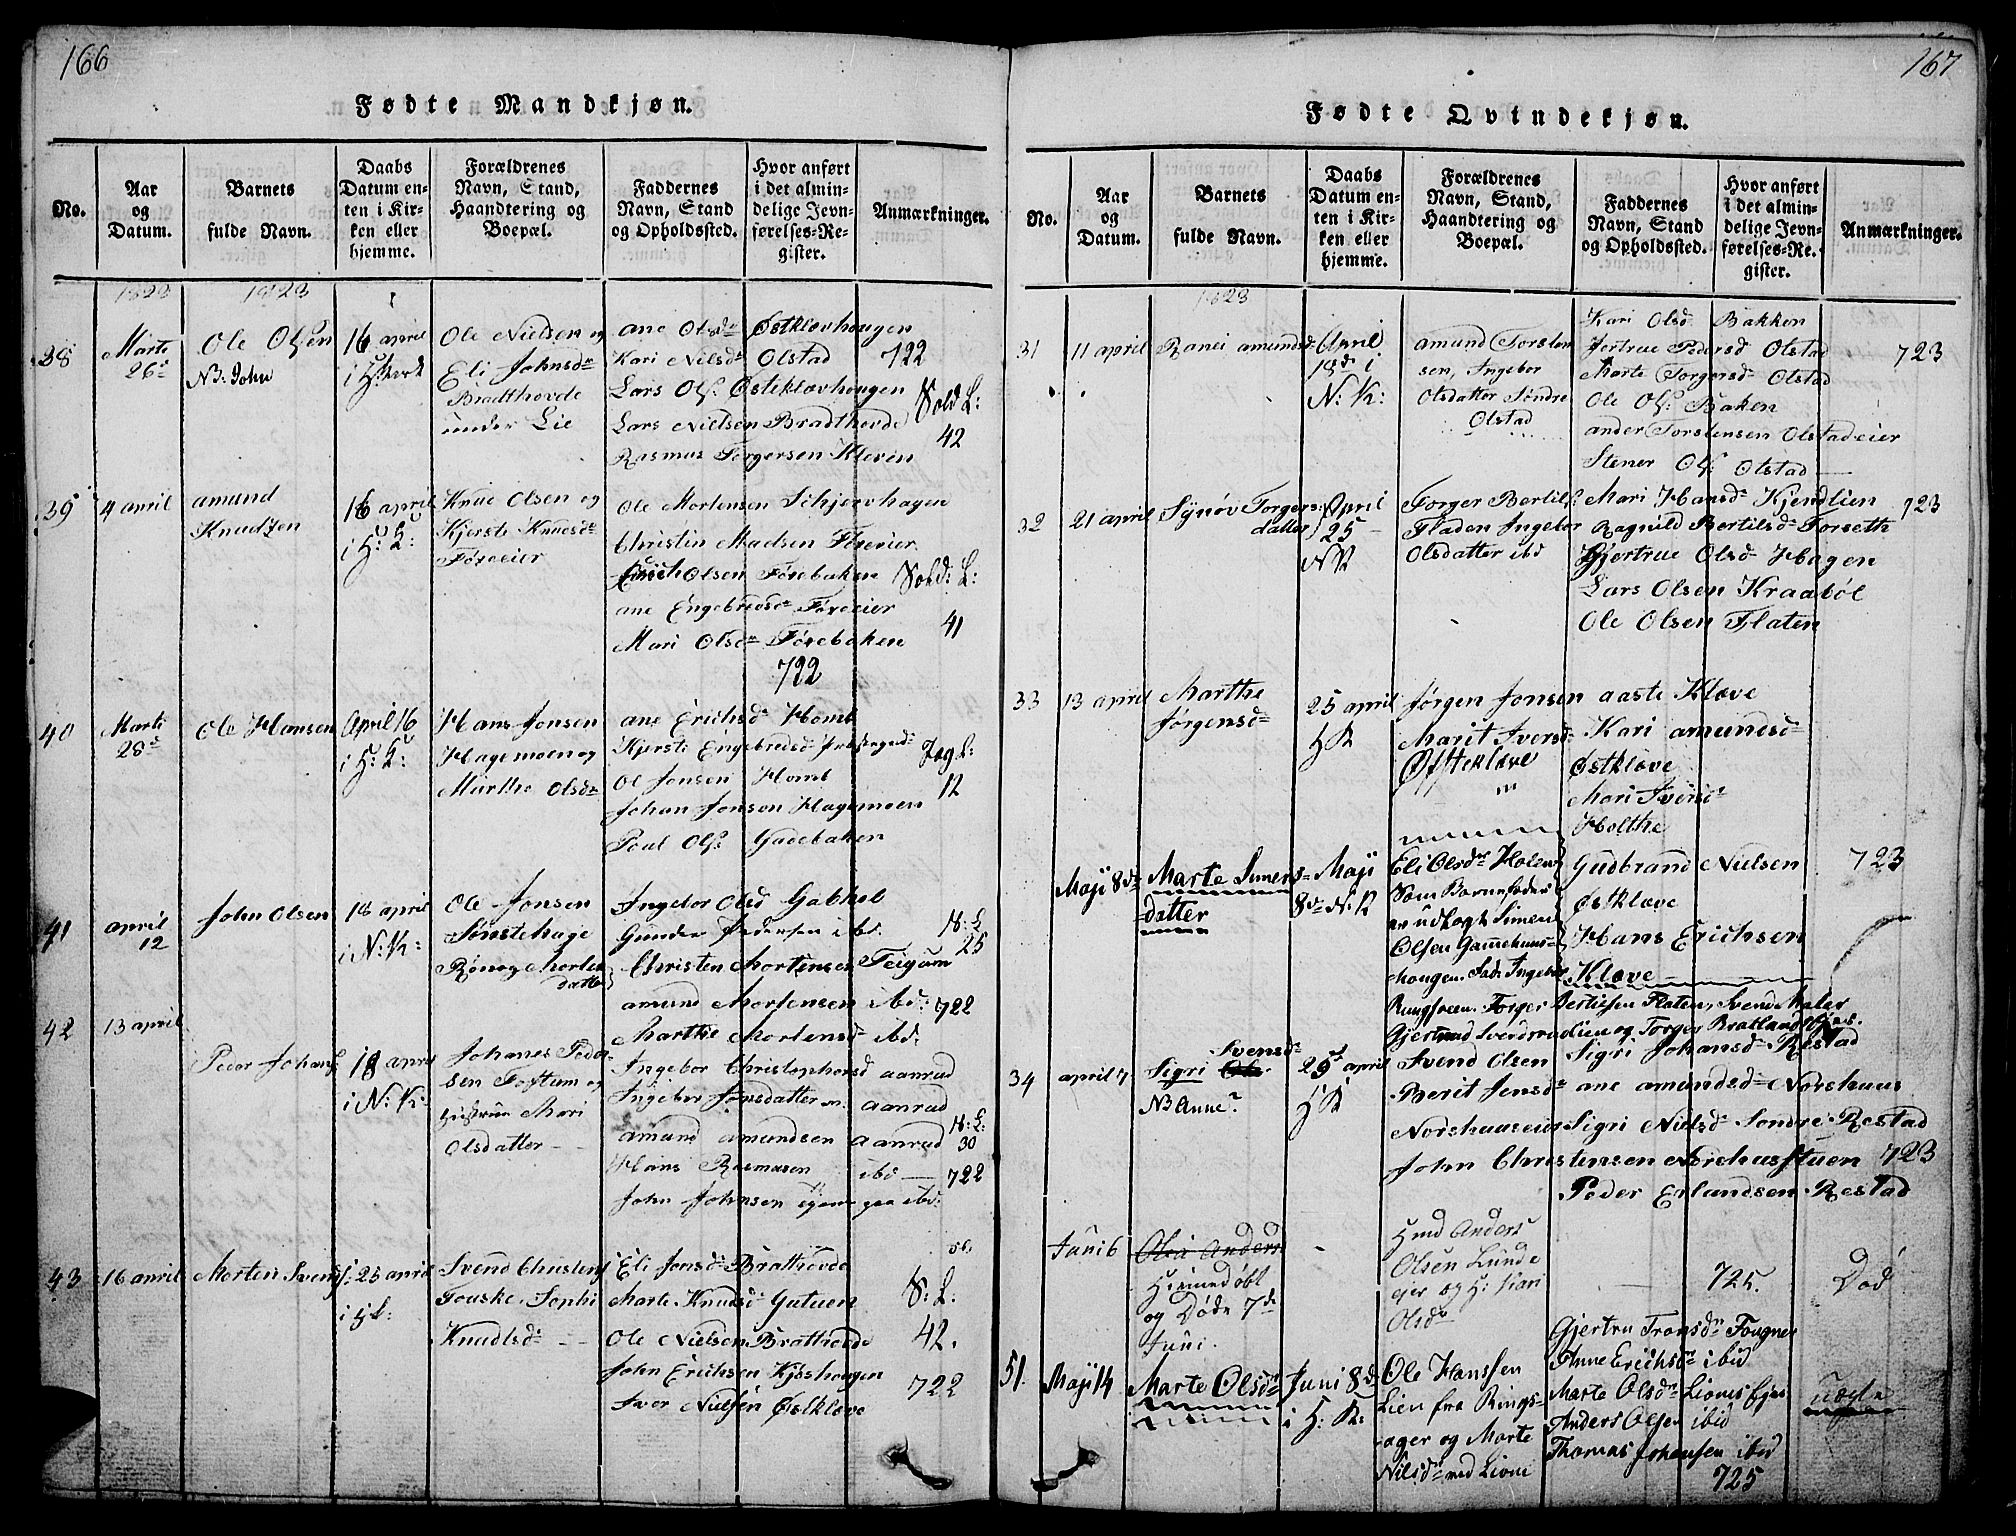 166
Fødte Mandkjøn.
No.
Aar og Datum.
Barnets fulde Navn.
Daabs Datum enten i Kirken eller hjemme.
Forældrenes Navn, Stand, Haandtering og Boepæl.
Faddernes Navn, Stand og Opholdssted.
Hvor anført i det almindelige Jevnførelses-Register.
Anmærkninger.
1823
1823
38
Marti 26
Ole Olsen
NB: John
16 april
i H: Kirk
Ole Nielsen og
Eli Johnsdr
Bradthovde
under Lie
ane Olsdr Østklævhougen
Kari Nilsdr Olstad
Lars Ols: Østeklævhougen
Lars Nielsen Bradthovde
Rasmus Torgersen Kleven
722
Sold L:
42
39
4 april
amund
Knudsen
16 april
i H: K:
Knue Olsen og
Kjerste Knuesdr
Føreeier
Ole Mortensen Schjervhagen
Christin Madsen Føreeier
Erich Olsen Førebaken
ane Engebredsdr Føreeier
Mari Olsdr Førebaken
722
Sold: L:
41
40
Marti
28
Ole Hansen
April 16
i H: K:
Hans Jonsen
Hagemoen og
Marthe Olsdr
ane Erichsd Homb
Kjersti Engebredsd
Ol Jonsen Homb
Johan Jonson Hagemoen
Poul Ols: Gadebaken
Jag L:
12
41
april
12
John Olsen
18 april
i N: K:
Ole Jonsen
Sønstehage
Rønog Morten
datter
Ingebor Olsd
Gunder Pedersen ibd.
Christen Mortensen Teigum
amund Mortensen ibd:
Marthe Mortensd ibd:
N: L
25
722
42
13 april
Peder Johans
18 april
i N: K:
Johanes Peder
sen Toftum og
hustrue Mari
Olsdatter
Ingebor Christophersd aanrud
Ingebor Jonsdatter aanrud
amund amundsen aanrud
Hans Rasmusen ibd
John Johnsen ibd:
N: L:
30
722
43
16 april
Morten Svens
25 april
i H K:
Svend Christens
Fouske, Sophi
Knudsd:
Eli Jonsd Brathovde
Marte Knudsd Gutuen
Ole Nielsen Brathovde
John Erichsen Kjosshougen
Iver Nielsen Østklæve
S: L:
42.
722
167
Fødte Qvindekjøn.
No.
Aar og Datum.
Barnets fulde Navn.
Daabs Datum enten i Kirken eller hjemme.
Forældrenes Navn, Stand, Haandtering og Boepæl.
Faddernes Navn, Stand og Opholdssted.
Hvor anført i det almindelige Jevnførelses-Register.
Anmærkninger.
1823
31
11 april
Ranei amundsd
April
18d i
N: K:
amund Torsten
sen, Ingebor
Olsdatter Søndre
Olstad
Kari Olsd Bakken
Jertrue Pedersd Olstad
Marte Torgersd Olstad
Ole Ols: Baken
ander Torstensen Olstadeier
Stener Ols: Olstad
723
32
21 april
Synøv Torgers
datter
April
25
N K
Torger Bertils:
Fladen Ingebor
Olsdatter ibd
Mari Hansdr Kjendlien
Ragnild Bertilsd Forseth
Gjertrue Olsd Hagen
Lars Olsen Kraabøl
Ole Olsen Flaten
723
33
13 april
Marthe
Jørgensdr
25 april
H K
Jørgen Jonsen
Marit Iversdr
Østeklæve
aaste Klæve
Kari amundsd
Østklæve
Mari Iversdr
Holthe
Maji 8de
Marte Simens
datter
Maji
8de N: K
Eli Olsdr Holen
Som Barnefader
er udlagt Simen
Olsen Gammehuus
hougen. Fadr Ingebor
Ringsveen. Torger Bertilsen Flaten, Svend Maler
Gjertrud Sverdrudlien og Torger Bratland
Gudbrand Nielsen
Østklæve
Hans Erichsen
Klæve
723
34
april 7
Sigri Svensdr
NB Anne?
25 april
H K
Svend Olsen
Berit Jensdr
Norshuuseier
Sigri Johansd Restad
ane amundsd Norshuus
Sigri Nielsd Søndre Restad
John Christensen Norshusstuen 723
Peder Erlandsen Restad
Juni 6
Olea Anders
Hiemmedøbt
og Døde 7de
Juni.
Hmd Anders
Olsen Lunde
ejer og H: Kari
Olsdr
725.
Død
51.
Maji 14
Marte Olsdr
Juni 8d
i H: K:
Ole Hanssen
Lien fra Rings-
ager og Marte
Nilsdr ved Lione
Gjertru Tronsdr Fougner
Anne Erichsdr ibid
Marte Olsdr Liones Ejer
Anders Olsen ibid
Thomas Johansen ibid
725
uægte